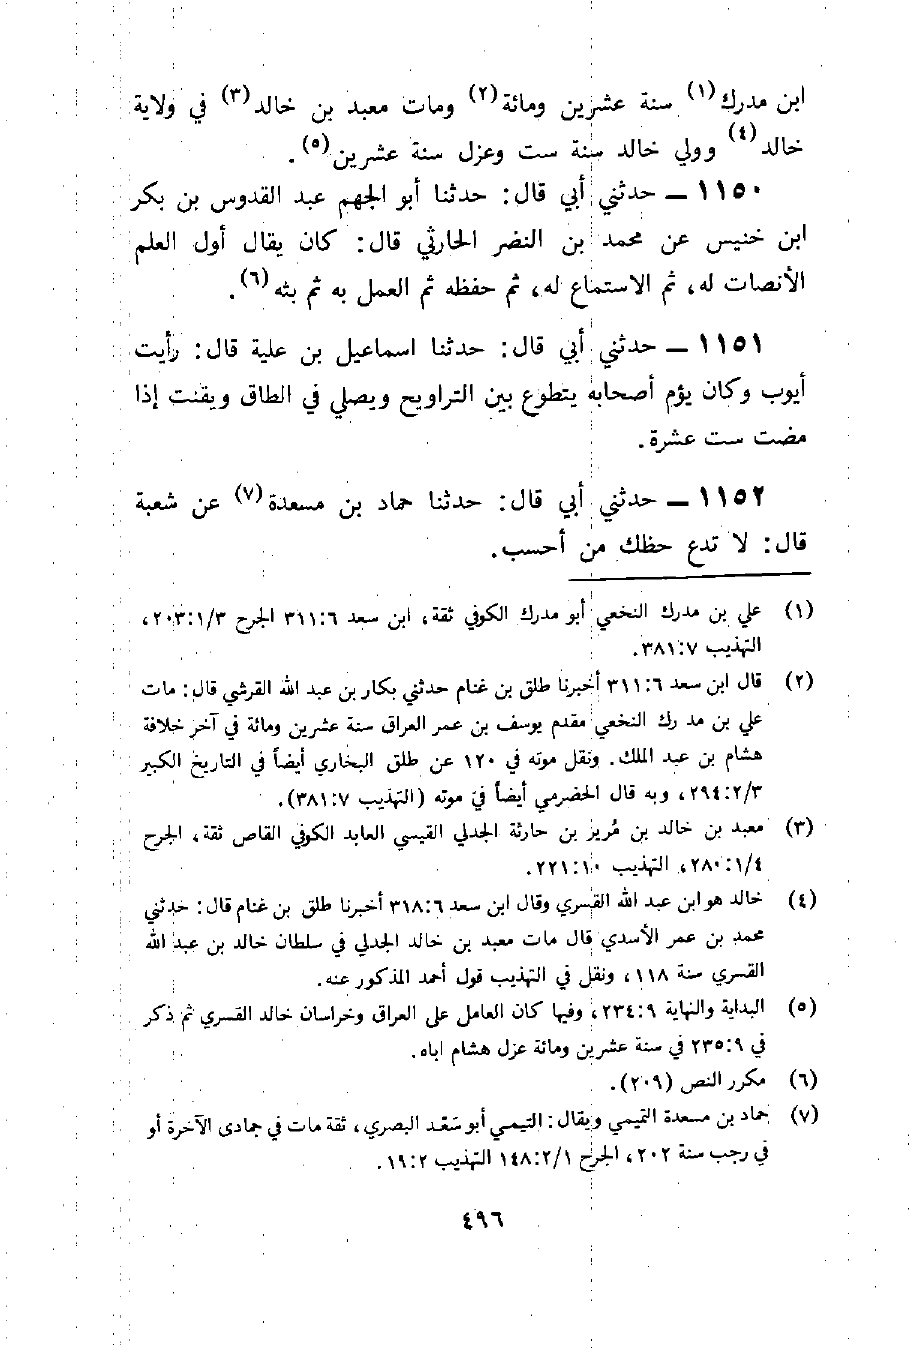 ابن مدرك(١) سنة عشرين ومائة(٢) ومات معبد بن خالد(٣) في ولاية
خالد(٤) وولي خالد سنة ست وعزل سنة عشرين(٥).
١١٥٠ – حدثني أبي قال: حدثنا أبو الجهم عبد القدوس بن بكر
ابن خنيس عن محمد بن النضر الحارثي قال: كان يقال أول العلم
الأنصات له، ثم الاستماع له، ثم حفظه ثم العمل به ثم بثه(٦).
١١٥١ – حدثني أبي قال: حدثنا اسماعيل بن علية قال: رأيت
أيوب وكان يؤم أصحابه يتطوع بين التراويح ويصلي في الطاق ويقنت إذا
مضت ست عشرة.
١١٥٢ – حدثني أبي قال: حدثنا حماد بن مسعدة(٧) عن شعبة
قال: لا تدع حظك من أحسب.
(١) علي بن مدرك النخعي أبو مدرك الكوفي ثقة، ابن سعد ٣١١:٦ الجرح ٢٠٣:١/٣،
التهذيب ٣٨١:٧.
(٢) قال ابن سعد ٣١١:٦ أخبرنا طلق بن غنام حدثني بكار بن عبد الله القرشي قال: مات
علي بن مدرك النخعي مقدم يوسف بن عمر العراق سنة عشرين ومائة في آخر خلافة
هشام بن عبد الملك. ونقل موته في ١٢٠ عن طلق البخاري أيضاً في التاريخ الكبير
٢٩٤:٢/٣، وبه قال الحضرمي أيضاً في موته (التهذيب ٣٨١:٧).
(٣) معبد بن خالد بن مُرير بن حارثة الجدلي القيسي العابد الكوفي القاص ثقة، الجرح
٢٨٠:١/٤، التهذيب ٢٢١:١٠.
(٤) خالد هو ابن عبد الله القسري وقال ابن سعد ٣١٨:٦ أخبرنا طلق بن غنام قال: حدثني
محمد بن عمر الأسدي قال مات معبد بن خالد الجدلي في سلطان خالد بن عبد الله
القسري سنة ١١٨، ونقل في التهذيب قول أحمد المذكور عنه.
(٥) البداية والنهاية ٢٣٤:٩، وفيها كان العامل على العراق وخراسان خالد القسري ثم ذكر
في ٢٣٥:٩ في سنة عشرين ومائة عزل هشام اياه.
(٦) مكرر النص (٢٠٩).
(٧) حماد بن مسعدة التميمي ويقال: التيمي أبو سَعْد البصري، ثقة مات في جمادى الآخرة أو
في رجب سنة ٢٠٢، الجرح ١٤٨:٢/١ التهذيب ١٩:٢.
٤٩٦